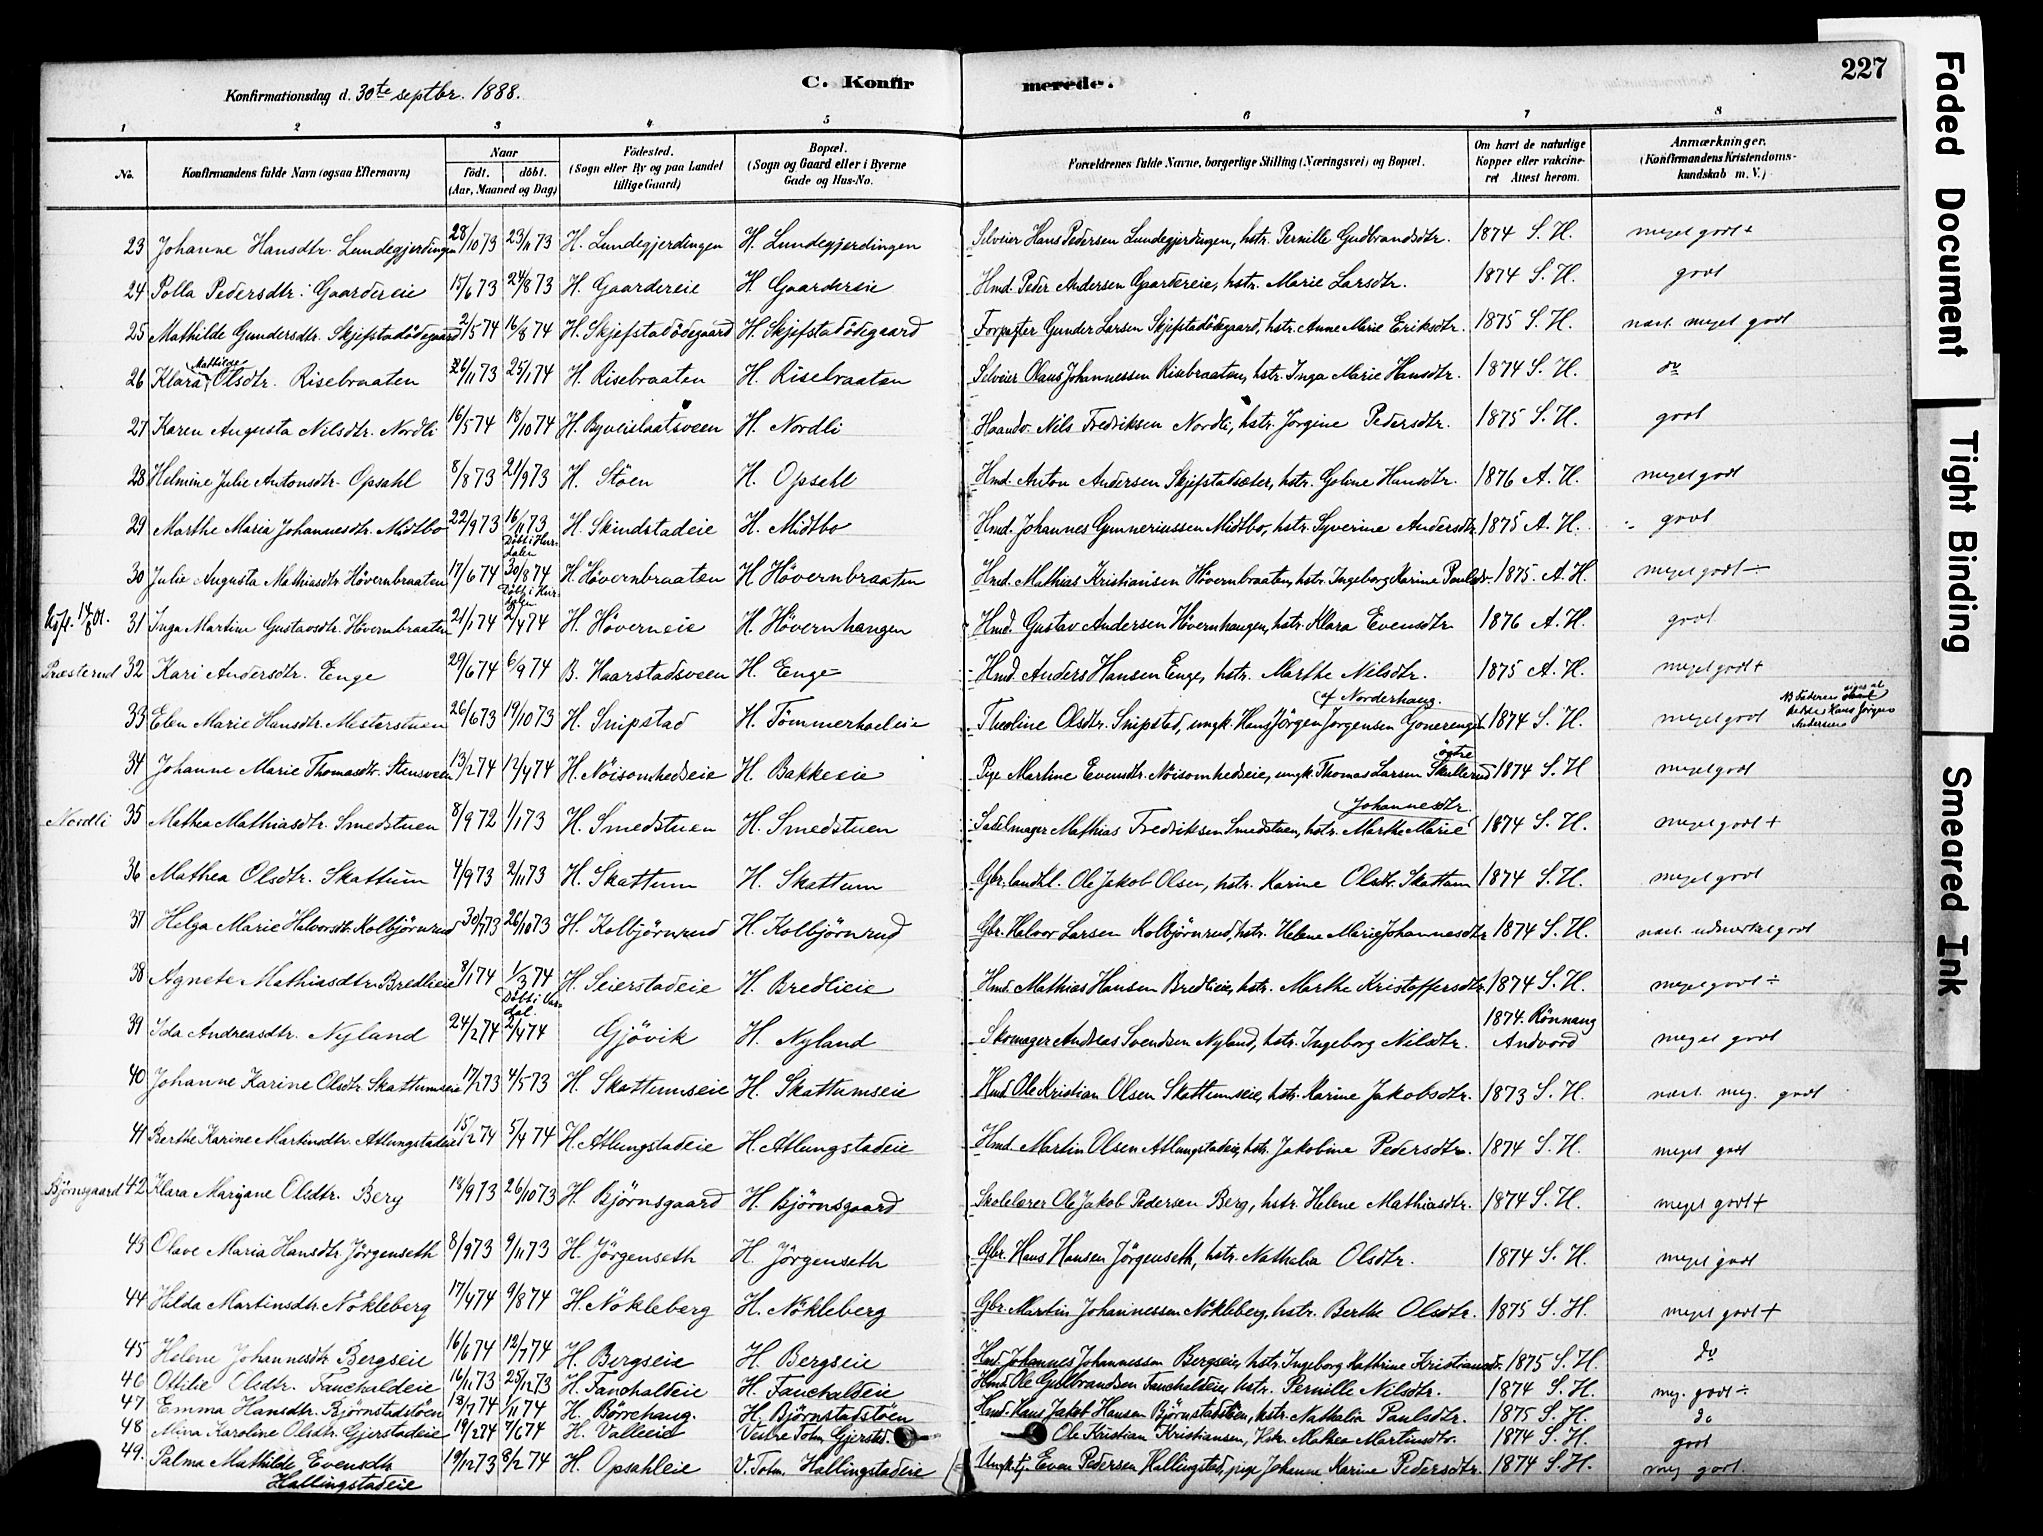 227
Konfirmationsdag d. 30te septbr. 1888.
C. Konfirmerede.
1 2 3 4 5 6 7 8
No. Konfirmandens fulde Navn (ogsaa Efternavn) Naar födt. döbt. (Aar, Maaned og Dag) Födested. (Sogn eller By og paa Landet tillige Gaard) Bopæl. (Sogn og Gaard eller i Byerne Gade og Hus-No. Forældrenes fulde Navne, borgerlige Stilling (Næringsvei) og Bopæl. Om havt de naturlige Kopper eller vakcineret Attest herom. Anmærkninger. (Konfirmandens Kristendomskundskab m. V.)
23 Johanne Hansdtr. Lundegjerdingen 28/10 73 23/11 73 H. Lundegjerdingen H. Lundegjerdingen Selveier Hans Pedersen Lundegjerdingen, hstr. Pernille Gudbrandsdtr. 1874 S. H. meget godt +
24 Polla Pedersdtr. Gaardereie 15/6 73 24/8 73 H. Gaardereie H. Gaardereie Hmd. Peder Andersen Gaardereie, hstr. Marie Larsdtr. 1874 S. H. godt
25 Mathilde Gundersdtr. Skjefstadödegaard 2/5 74 16/8 74 H. Skjefstadödegaard H. Skjefstadödegaard Forpagter Gunder Larsen Skjefstadödegaard, hstr. Anne Marie Eriksdtr. 1875 S. H. næst. meget godt
26 Klara Mathilde Olsdtr. Risebraaten 26/11 73 25/1 74 H. Risebraaten H. Risebraaten Selveier Olaus Johannessen Risebraaten, hstr. Inga Marie Hansdtr. 1874 S. H. do
27 Karen Augusta Nilsdtr. Nordli 16/5 74 18/10 74 H. Byveislaatsveen H. Nordli Haandv. Nils Fredriksen Nordli, hstr. Jörgine Pedersdtr. 1875 S. H. godt
28 Helmine Julie Antonsdtr. Opsahl 8/8 73 21/9 73 H. Stöen H. Opsahl Hmd. Anton Andersen Skjefstadsæter, hstr. Goline Hansdtr. 1876 A. H. meget godt
29 Marthe Maria Johannesdtr. Midtbo 22/9 73 16/11 73 H. Skindstadeie H. Midtbo Hmd. Johannes Gunneriussen Midtbo, hstr. Syverine Andersdtr. 1875 A. H. godt
Döbt i Hurdalen
30 Julie Augusta Mathiasdtr. Hövernbraaten 17/6 74 30/8 74 H. Hövernbraaten H. Hövernbraaten Hmd. Mathias Kristiansen Hövernbraaten, hstr. Ingeborg Karine Paulsdtr. 1875. A. H. meget godt ÷
Döbt i Hurdalen
31 Inga Martine Gustavsdtr. Hövernbraaten 21/1 74 2/4 74 H. Höverneie H. Hövernhaugen Hmd. Gustav Andersen Hövernhaugen, hstr. Klara Evensdtr. 1876 A. H. godt
Præsterud 32 Kari Andersdtr. Enge 29/6 74 6/9 74 B. Haarstadsveen H. Enge Hmd. Anders Hansen Enge, hstr. Marthe Nilsdtr. 1875 A. H. meget godt +
33 Elen Marie Hansdtr. Mesterstuen 26/6 73 19/10 73 H. Snipstad H. Tömmerholeie Theoline Olsdtr. Snipstad, ungk. Hans Jörgen Jorgensen Gonerengen af Norderhaug. 1874 S. H. meget godt NB Faderen siges at hedde Hans Jörgen Andersen
34 Johanne Marie Thomasdtr. Stensveen 13/2 74 12/4 74 H. Nöisomhedseie H. Bakkeeie Pige Martine Evensdtr. Nöisomhedseie, ungk. Thomas Larsen Skullerud östre 1874 S. H meget godt
Nordli 35 Mathea Mathiasdtr. Smedstuen 8/9 72 1/1 73 H. Smedstuen H. Smedstuen Sadelmager Mathias Fredriksen Smedstuen, hstr. Marthe Marie Johannesdtr. 1874 S. H. meget godt +
36 Mathea Olsdtr. Skattum 4/9 73 2/11 73 H. Skattum H. Skattum Gbr. landhl. Ole Jakob Olsen, hstr. Karine Olsdtr. Skattum 1874 S. H. meget godt
37 Helga Marie Halvorsdtr. Kolbjörnrud 30/7 73 26/10 73 H. Kolbjörnrud H. Kolbjörnrud Gbr. Halvor Larsen Kolbjörnrud, hstr. Helene Marie Johannesdtr. 1874 S. H. næst. udmærket godt
38 Agnete Mathiasdtr. Bredlieie 8/1 74 1/3 74 H. Seierstadeie H. Bredlieie Hmd. Mathias Hansen Bredlieie, hstr. Marthe Kristoffersdtr. 1874 S. H. meget godt ÷
39 Ida Andreasdtr. Nyland 24/2 74 2/4 74 Gjövik H. Nyland Skomager Andreas Svendsen Nyland, hstr. Ingeborg Nilsdtr. 1874. Rönnaug Andvord meget godt
40 Johanne Karine Olsdtr. Skattumseie 17/2 73 4/5 73 H. Skattumseie H. Skattumseie Hmd. Ole Kristian Olsen Skattumseie, hstr. Karine Jakobsdtr. 1873 S. H. næst. meg. godt
41 Berthe Karine Martinsdtr. Atlungstadeie 15/2 74 5/4 74 H. Atlungstadeie H. Atlungstadeie Hmd. Martin Olsen Atlungstadeie, hstr. Jakobine Pedersdtr. 1874 S. H. meget godt
Björnsgaard 42 Klara Marijane Olsdtr. Berg 13/9 73 26/10 73 H. Björnsgaard H. Björnsgaard Skolelærer Ole Jakob Pedersen Berg, hstr. Helene Mathiasdtr. 1874 S. H. meget godt +
43 Olave Maria Hansdtr. Jörgenseth 8/9 73 9/11 73 H. Jörgenseth H. Jörgenseth Gbr. Hans Hansen Jörgenseth, hstr. Nathalia Olsdtr. 1874 S. H. meget godt
44 Hilda Martinsdtr. Nökleberg 17/4 74 9/8 74 H. Nökleberg H. Nökleberg Gbr. Martin Johannessen Nökleberg, hstr. Berthe Olsdtr. 1875 S. H. meget godt +
45 Helene Johannesdtr. Bergseie 16/6 74 12/7 74 H. Bergseie H. Bergseie Hmd. Johannes Johannessen Bergseie, hstr. Ingeborg Kathrine Kristiansdtr. 1875 S. H. do
46 Ottilie Olsdtr. Fauchaldeie 16/11 73 25/12 73 H. Fauchaldeie H. Fauchaldeie Hmd. Ole Gulbrandsen Fauchaldeie, hstr. Pernille Nilsdtr. 1874 S. H. meg. godt ÷
47 Emma Hansdtr. Björnstadstöen 18/7 74 1/11 74 H. Börrehaug. H. Björnstadstöen Hmd. Hans Jakob Hansen Björnstadstöen, hstr. Nathalia Paulsdtr. 1875 S. H. do
48 Mina Karoline Olsdtr. Gjerstadeie 19/2 74 7/6 74 H. Valleeid Vestre Totn Gjerstd. Ole Kristian Kristiansen, Hstr. Mathea Martinsdtr. 1874 S. H. godt
49. Palma Mathilde Evensdtr. Hallingstadeie 19/12 73 8/2 74 H. Opsahleie V. Totn. Hallingstadeie Ungktj. Even Pedersen Hallingstad, pige Johanne Karine Pedersdtr. 1874 S. H. meg godt.
Faded Document
Tight Binding
Smeared Ink